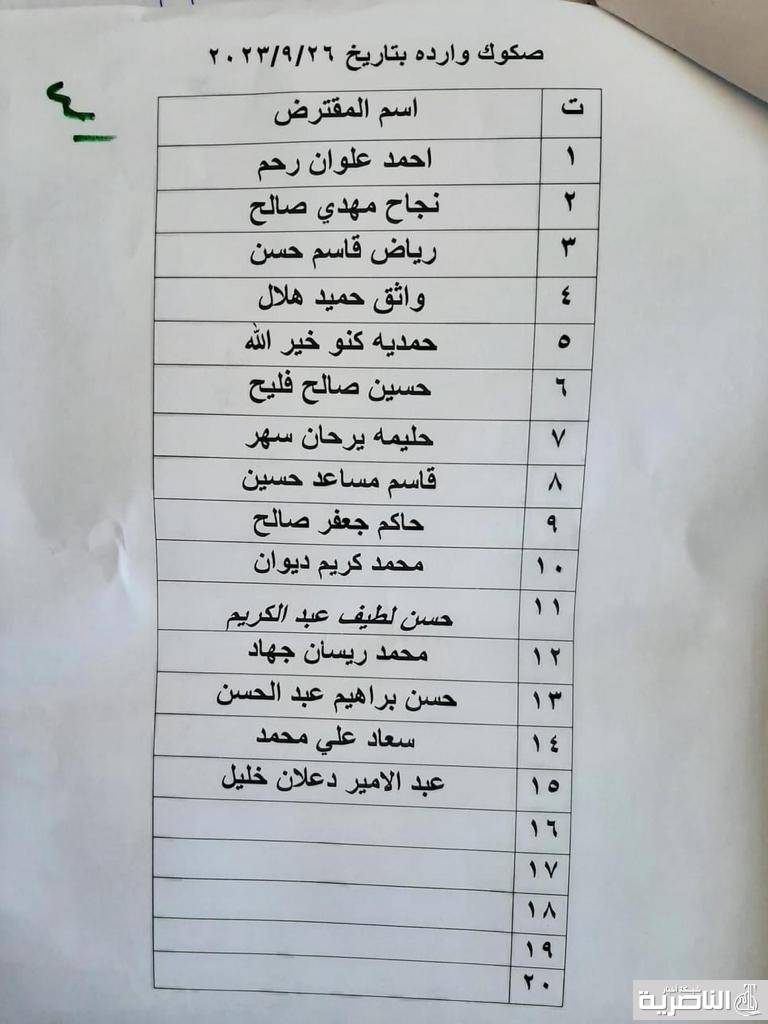 صكوك وارده بتاريخ ٢٠٢٣/٩/٢٦
٤
ت اسم المقترض
١ احمد علوان رحم
٢ نجاح مهدي صالح
٣ رياض قاسم حسن
٤ واثق حميد هلال
٥ حمديه كنو خير الله
٦ حسين صالح فليح
٧ حليمه يرحان سهر
٨ قاسم مساعد حسين
٩ حاكم جعفر صالح
١٠ محمد كريم ديوان
١١ حسن لطيف عبد الكريم
١٢ محمد ريسان جهاد
١٣ حسن براهيم عبد الحسن
١٤ سعاد علي محمد
١٥ عبد الامير دعلان خليل
١٦
١٧
١٨
١٩
٢٠
شبكة أخبار
الناصرية